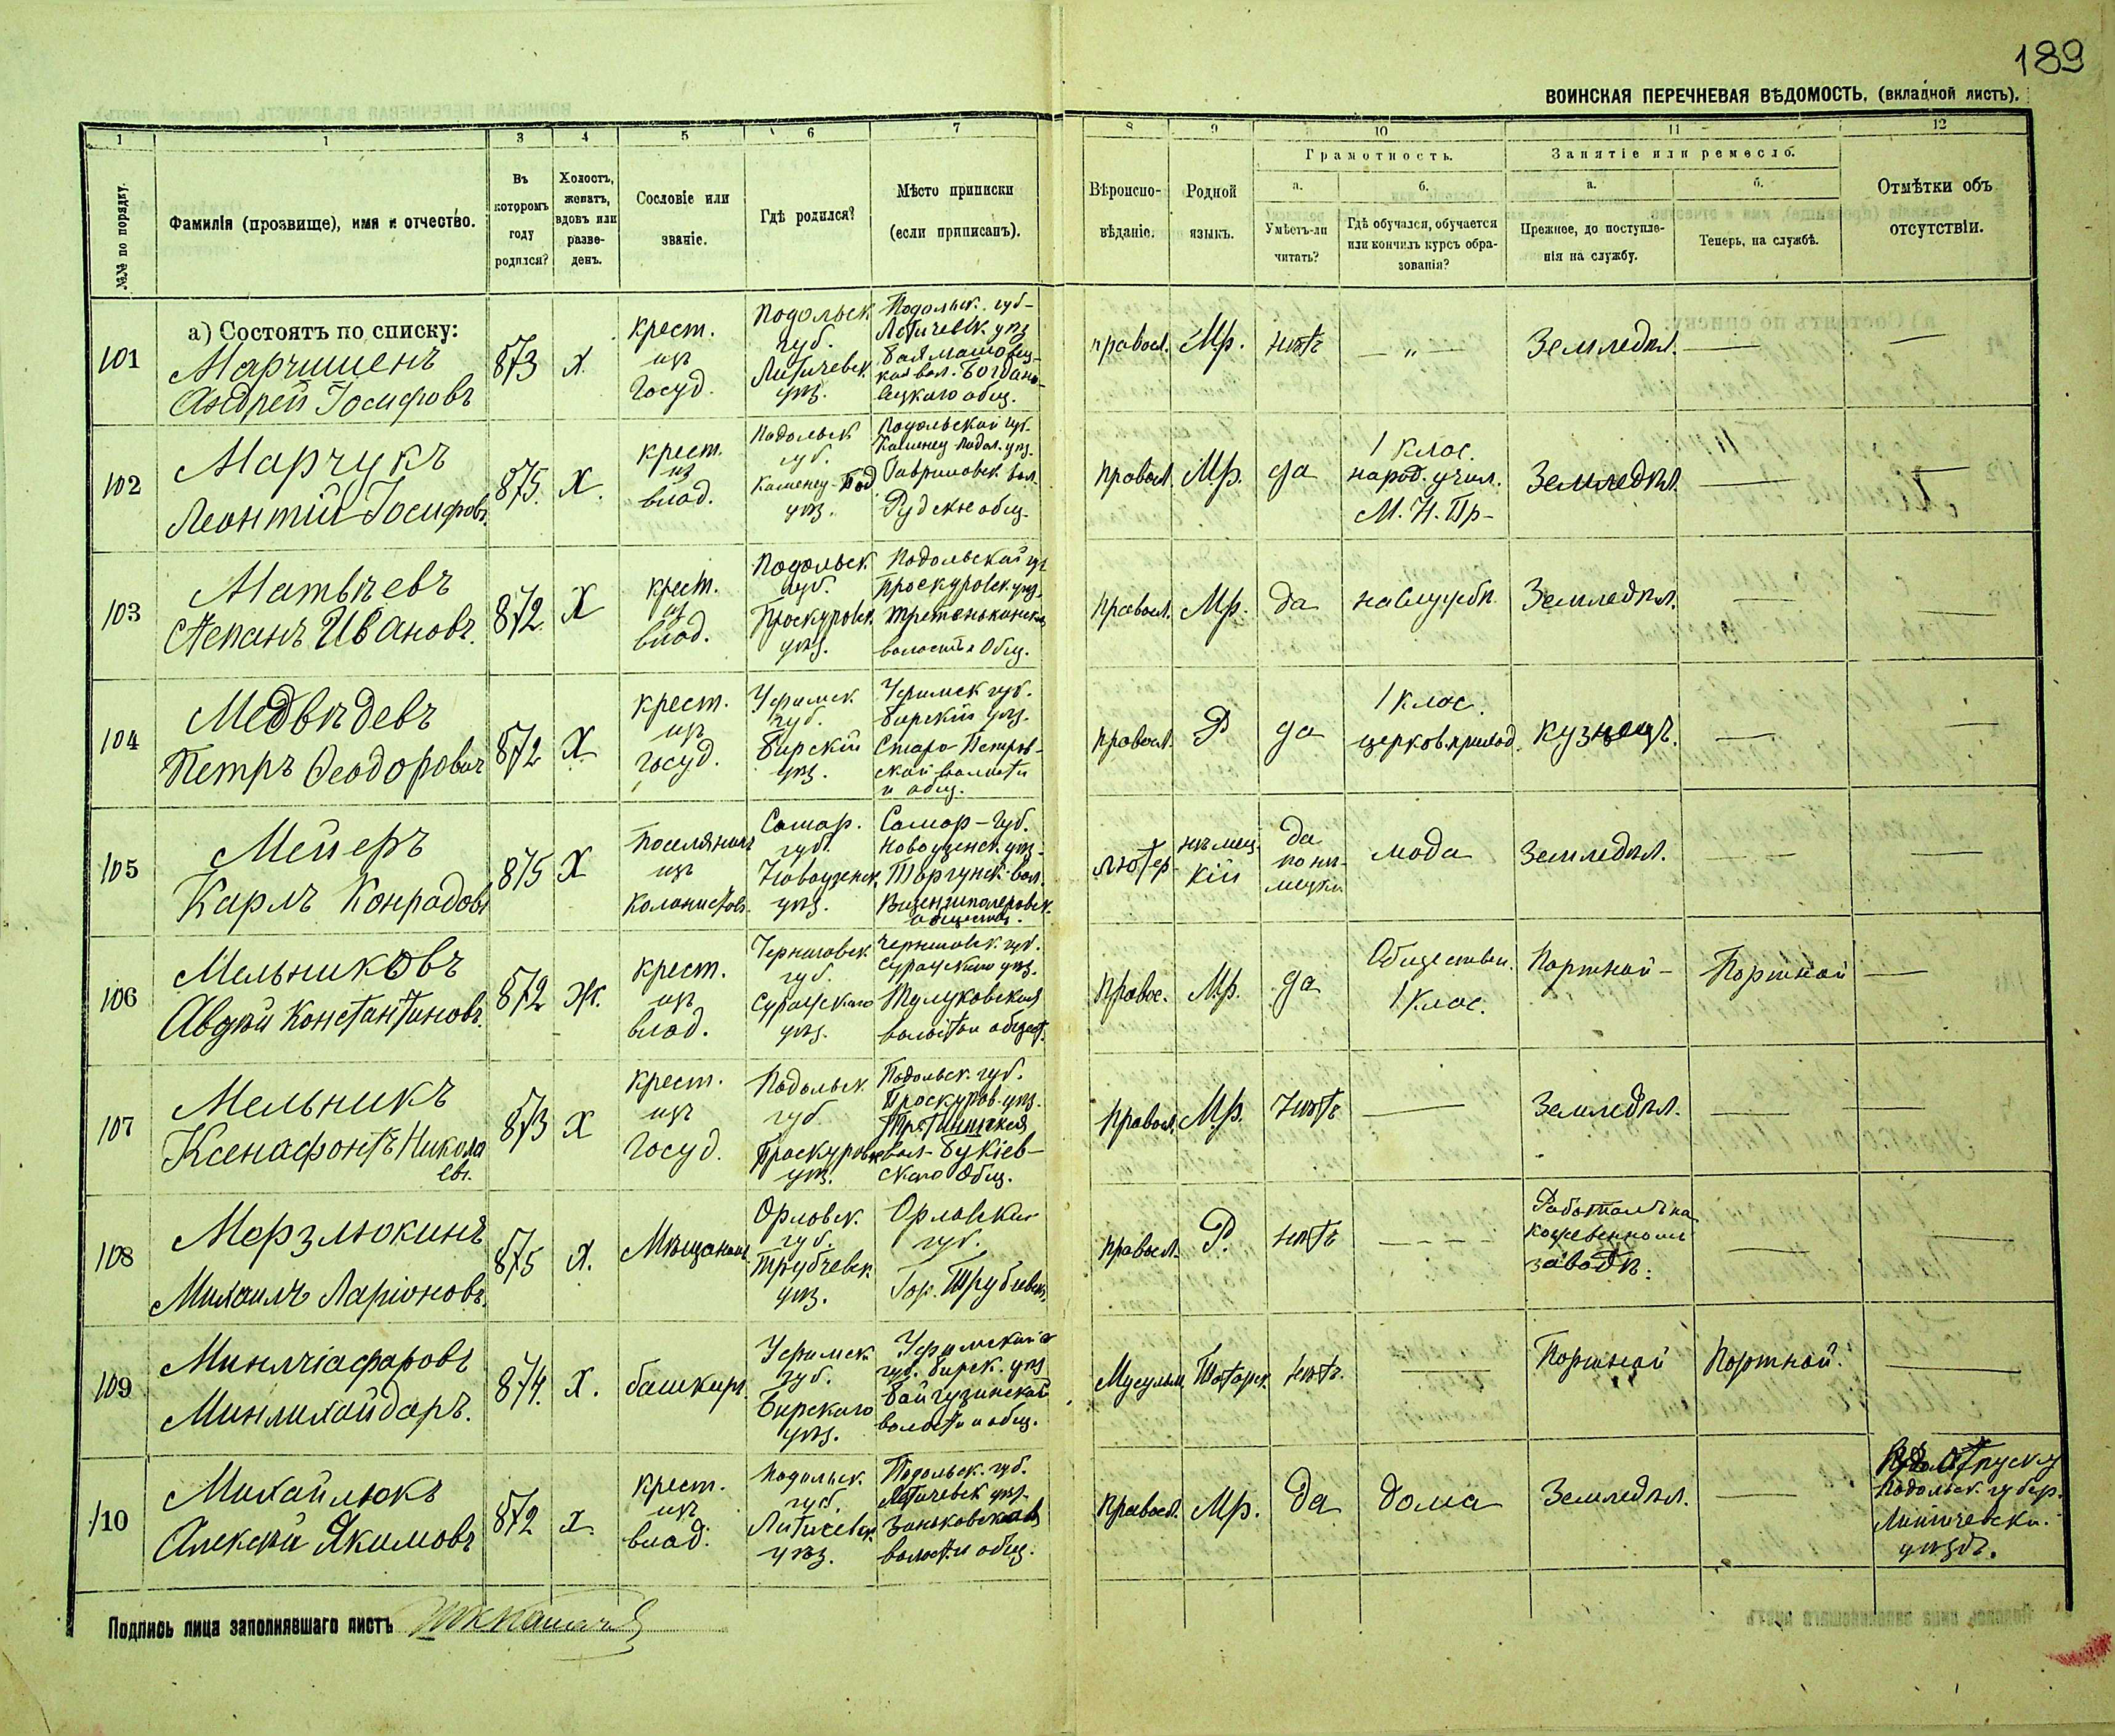 189
ВОИНСКАЯ ПЕРЕЧНЕВАЯ ВѢДОМОСТЬ, (вкладной листъ).
1 1 3 4 5 6 7 8 9 10 11 12
№№ по порядку.
Фамилія (прозвище), имя и отчество.
Въ которомъ году родился?
Холостъ, женатъ, вдовъ или разве-денъ.
Сословіе или званіе.
Гдѣ родился?
Мѣсто приписки (если приписанъ).
Вѣроиспо-вѣданіе.
Родной языкъ.
Грамотность.
а. Умѣетъ-ли читать?
б. Гдѣ обучался, обучается или кончилъ курсъ обра-зованія?
Занятіе или ремесло.
а. Прежнее, до поступле-нія на службу.
б. Теперь, на службѣ.
Отмѣтки объ отсутствіи.
а) Состоятъ по списку:
101 Марчишенъ Андрей Іосифовъ
873 Х.
крест. изъ госуд.
Подольск губ. Летичевск. уѣз.
Подольск. губ- Летичевск. уѣз вол. общ.
правосл. Мр. нѣтъ — „ — Земледѣл. — —
102 Марчукъ Леонтій Іосифов
875. Х.
крест. из влад.
Подольск губ. Каменец-Под уѣз.
Подольской губ. Каменец Подол. уѣз. вол. общ.
Правосл. Мр. да
1 клас. народ. учил. М. Н. Пр-
Земледѣл. — —
103 Матвѣевъ Степанъ Ивановъ.
872. Х
крест. из влад.
Подольск губ. Проскуровск. уѣз.
Подольской губ Проскуровск. уѣз. волости и Общ.
Правосл. Мр. да на службѣ Земледѣл. — —
104 Медвѣдевъ Петръ Ѳеодоровъ
872 Х
крест. изъ госуд.
Уфимск губ. Бирскій уѣз.
Уфимск губ. Бирскій уѣз. Старо-Петров-ской волости и общ.
Правосл. Р да
1 клас. церков. приход.
Кузнецъ. — —
105 Мейеръ Карлъ Конрадов
875 Х
Поселянинъ изъ колонистовъ.
Самар. губ. Новоузенск. уѣз.
Самар-губ. Новоузенск. уѣз- Торгунск. вол. общества.
Лютер. нѣмец-кій
да по нѣ-мецки
Земледѣл. — —
106 Мельниковъ Авдѣй Константиновъ.
872 Ж.
крест. изъ влад.
Черниговск губ. Суражскаго уѣз.
Черниговск. губ. Суражскаго уѣз. волости общест.
Правос. Мр. да
Обществен. 1 клас.
Портной - Портной —
107 Мельникъ Ксенафонтъ Никола евъ.
873 Х
крест. изъ госуд.
Подольск губ Проскуровск уѣз.
Подольск. губ. Проскуров. уѣз. вол- Букіев-скаго Общ.
Правосл. Мр. нѣтъ — Земледѣл. — —
108 Мерзлюкинъ Михаилъ Ларіоновъ.
875 Х.
Мѣщанинъ
Орловск. губ. Трубчевск. уѣз.
Орловская губ. Гор. Трубчевск.
Правосл. Р. нѣтъ
Работалъ на кожевенномъ заводѣ. — —
109 Минлихайдаръ.
874. Х. башкиръ
Уфимск губ. Бирскаго уѣз.
Уфимской губ. Бирск. уѣз Байгузинской волости и общ.
Мусульм. Татарск. нѣтъ. — Портной Портной. —
110 Михайлюкъ Алексѣй Якимовъ
872 х.
крест. изъ влад.
Подольск. губ. Летичевск. уѣз.
Подольск. губ. Летичевск уѣз. волости общ.
Правосл. Мр. да дома Земледѣл. —
отпуску Подольск. губер. уѣздъ.
Подпись лица заполнявшаго листъ